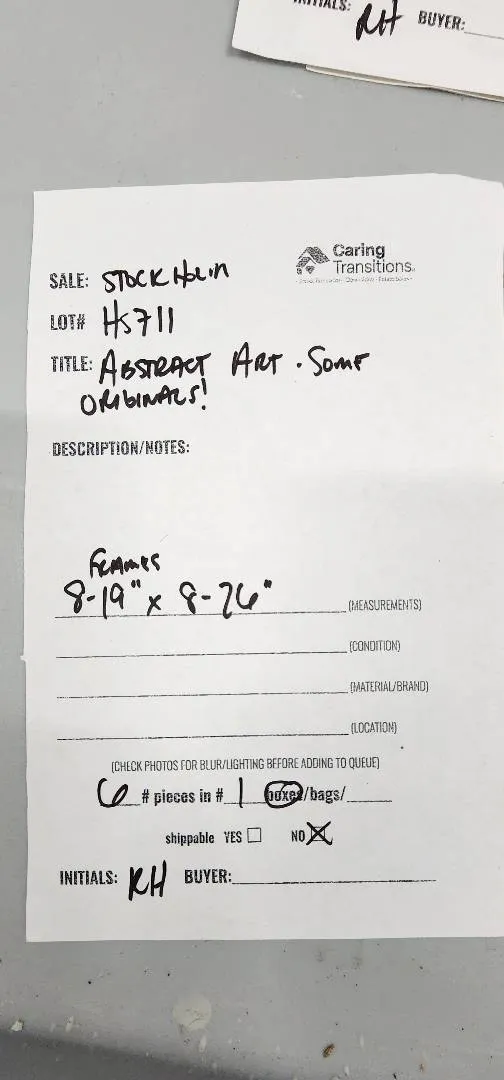 INITIALS: RH BUYER:
Caring
Transitions
SALE: STOCKHOLM
LOT# HS711
TITLE: ABSTRACT ART. SOME
ORIGINALS!
DESCRIPTION/NOTES:
FRAMES
8-19" x 8-26" (MEASUREMENTS)
(CONDITION)
(MATERIAL/BRAND)
(LOCATION)
(CHECK PHOTOS FOR BLUR/LIGHTING BEFORE ADDING TO QUEUE)
6 # pieces in # 1 boxes/bags/
shippable YES NO
INITIALS: RH BUYER: